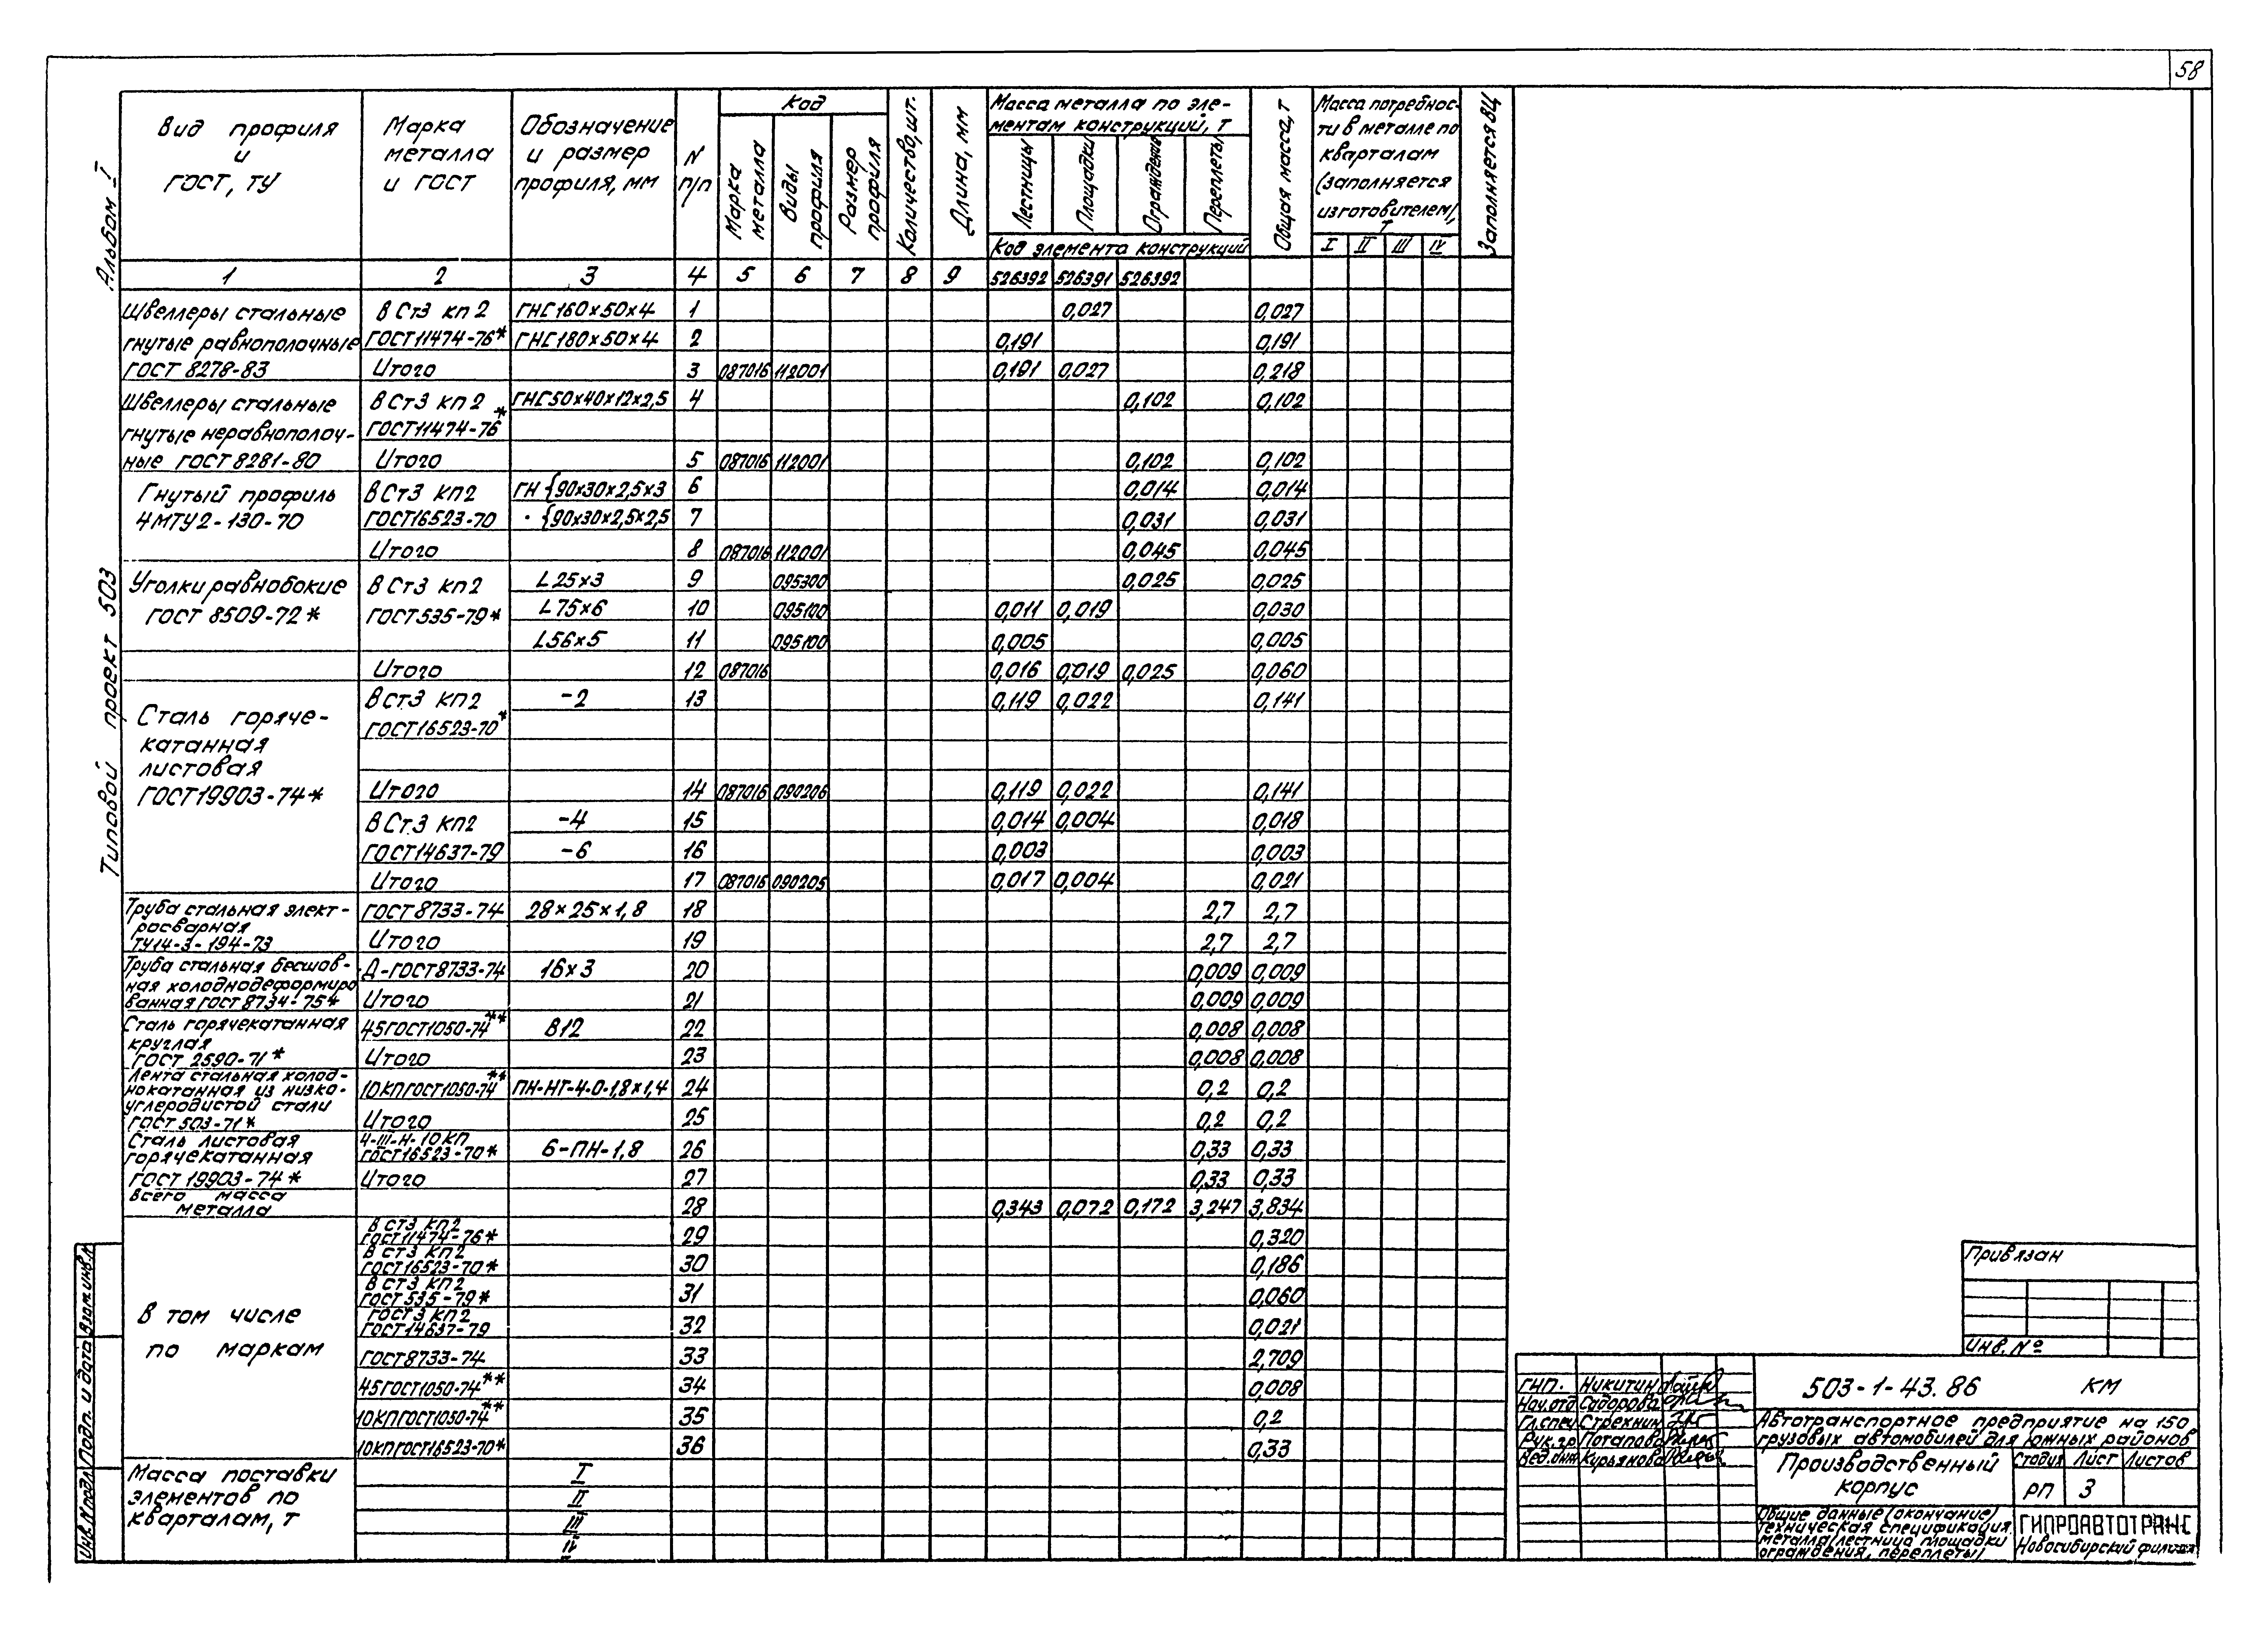 58
Альбом I
Типовой проект 503
Вид профиля и ГОСТ, ТУ
Марка металла и ГОСТ
Обозначение и размер профиля, мм
N п/п
Код
Марка металла
Виды профиля
Размер профиля
Количество, шт.
Длина, мм
Масса металла по элементам конструкций, Т
Лестницы Площадки Ограждены Переплеты
Код элемента конструкций
Общая масса, Т
Масса потребнос-
ти в металле по
кварталам
(заполняется
изготовителем),
Т
I II III IV
Заполняется ВЦ
1 2 3 4 5 6 7 8 9 526392 526391 526392
Швеллеры стальные В Ст3 кп 2 ГНС160×50×4 1 0,027 0,027
гнутые равнополочные ГОСТ11474-76* ГНС180×50×4 2 0,191 0,191
ГОСТ 8278-83 Итого 3 087016 112001 0,191 0,027 0,218
Швеллеры стальные В Ст3 кп 2 ГНС50×40×12×2,5 4 0,102 0,102
гнутые неравнополоч- ГОСТ11474-76*
ные ГОСТ 8281-80 Итого 5 087016 112001 0,102 0,102
Гнутый профиль В Ст3 кп2 ГН {90×30×2,5×3 6 0,014 0,014
4МТУ2-130-70 ГОСТ16523-70 · {90×30×2,5×2,5 7 0,031 0,031
Итого 8 087016 112001 0,045 0,045
Уголки равнобокие В Ст3 кп2 L25×3 9 095300 0,025 0,025
ГОСТ 8509-72* ГОСТ535-79* L75×6 10 095100 0,011 0,019 0,030
L56×5 11 095100 0,005 0,005
Итого 12 087016 0,016 0,019 0,025 0,060
Сталь горяче- В Ст3 кп2 -2 13 0,119 0,022 0,141
ГОСТ16523-70*
катанная
листовая
ГОСТ19903-74* Итого 14 087016 090206 0,119 0,022 0,141
В Ст.3 кп2 -4 15 0,014 0,004 0,018
ГОСТ14637-79 -6 16 0,003 0,003
Итого 17 087016 090205 0,017 0,004 0,021
Труба стальная элект- ГОСТ 8733-74 28×25×1,8 18 2,7 2,7
росварная
ТУ14-3-194-73 Итого 19 2,7 2,7
Труба стальная бесшов- Д-ГОСТ8733-74 16×3 20 0,009 0,009
ная холоднодеформиро
ванная ГОСТ 8734-75* Итого 21 0,009 0,009
Сталь горячекатанная 45ГОСТ1050-74** В12 22 0,008 0,008
круглая
ГОСТ 2590-71* Итого 23 0,008 0,008
Лента стальная холод-
нокатанная из низко- 10КПГОСТ1050-74** ПН-НТ-4-0-1,8×1,4 24 0,2 0,2
углеродистой стали
ГОСТ 503-71* Итого 25 0,2 0,2
Сталь листовая 4-III-Н-10КП
горячекатанная ГОСТ16523-70* 6-ПН-1,8 26 0,33 0,33
ГОСТ 19903-74* Итого 27 0,33 0,33
Всего масса
металла 28 0,343 0,072 0,172 3,247 3,834
В ст3 кп2
ГОСТ11474-76* 29 0,320
В ст3 кп2
ГОСТ16523-70* 30 0,186
В ст3 кп2
ГОСТ535-79* 31 0,060
В том числе
ГОСТ 3 кп2
ГОСТ14637-79 32 0,021
по маркам ГОСТ8733-74 33 2,709
45ГОСТ1050-74** 34 0,008
10КПГОСТ1050-74** 35 0,2
10КПГОСТ16523-70* 36 0,33
Масса поставки I
элементов по II
кварталам, т III
IV
Инв.№ подл. Подп. и дата Взам.инв.№
Привязан
Инв. №
ГИП. Никитин
Нач.отд Сидорова
Гл.спец Стрехнин
Рук.гр. Потапова
Вед.инж Курьянова
503-1-43.86 КМ
Автотранспортное предприятие на 150
грузовых автомобилей для южных районов
Производственный корпус
Стадия Лист Листов
РП 3
Общие данные (окончание)
Техническая спецификация
металла (лестница площадки
ограждения, переплеты)
ГИПРОАВТОТРАНС
Новосибирский филиал